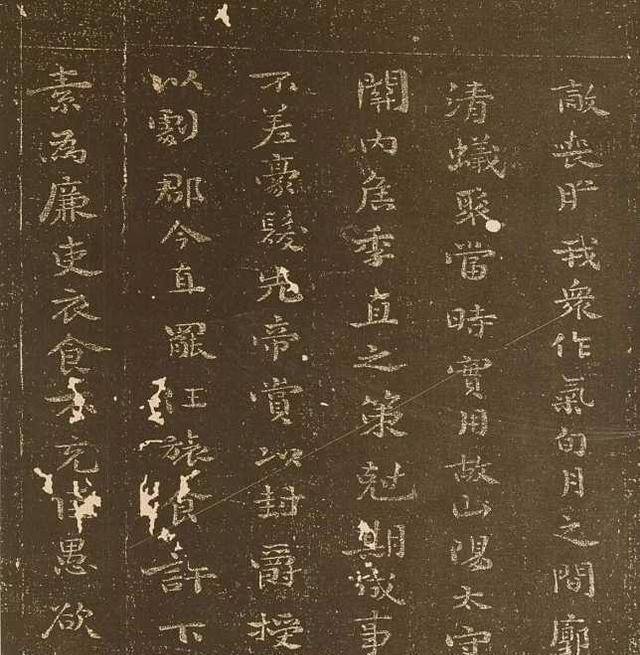 敵喪膽我衆作氣旬月之間廓
清蟻聚當時實用故山陽太守
關內侯季直之策尅期成事
不差豪髮先帝賞以封爵授
以劇郡今直罷任旅食許下
素為廉吏衣食不充愚欲